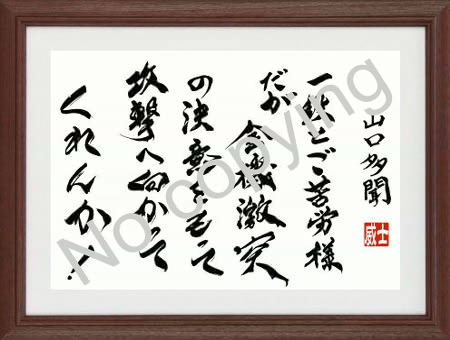 山口多聞
威士
ご苦労様
だが 全機激突
の決意をもって
攻撃へ向かって
くれんか!
No copying